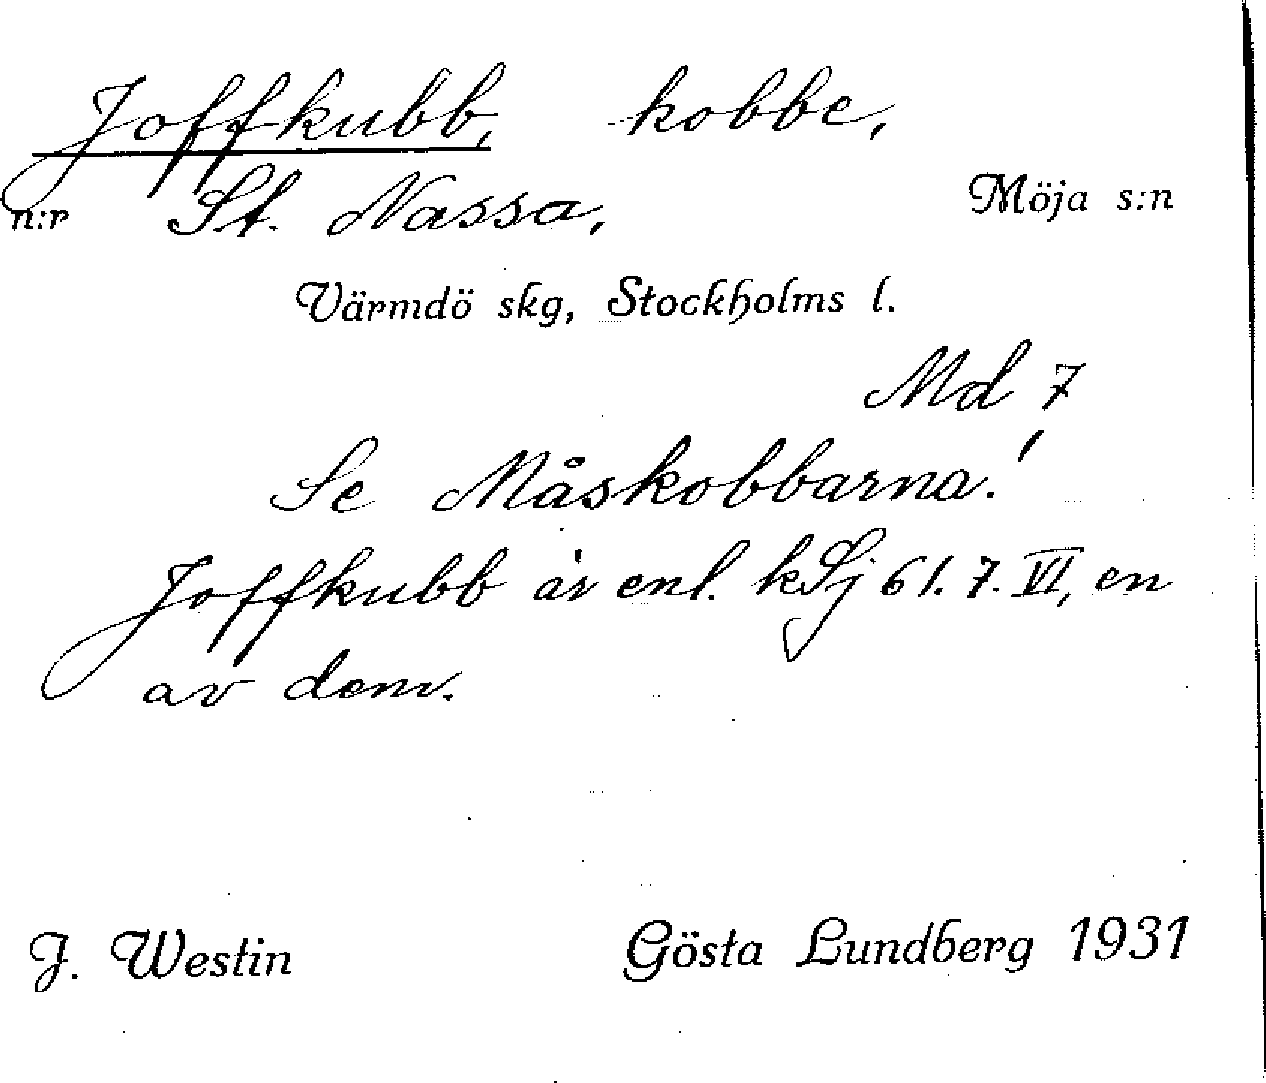 Joffkubb, kobbe,
n:r St. Nassa, Möja s:n
Värmdö skg, Stockholms l.
Md 7
Se Måskobbarna!
Joffkubb är enl. kSj 61. 7. VI, en
av dem.
J. Westin Gösta Lundberg 1931